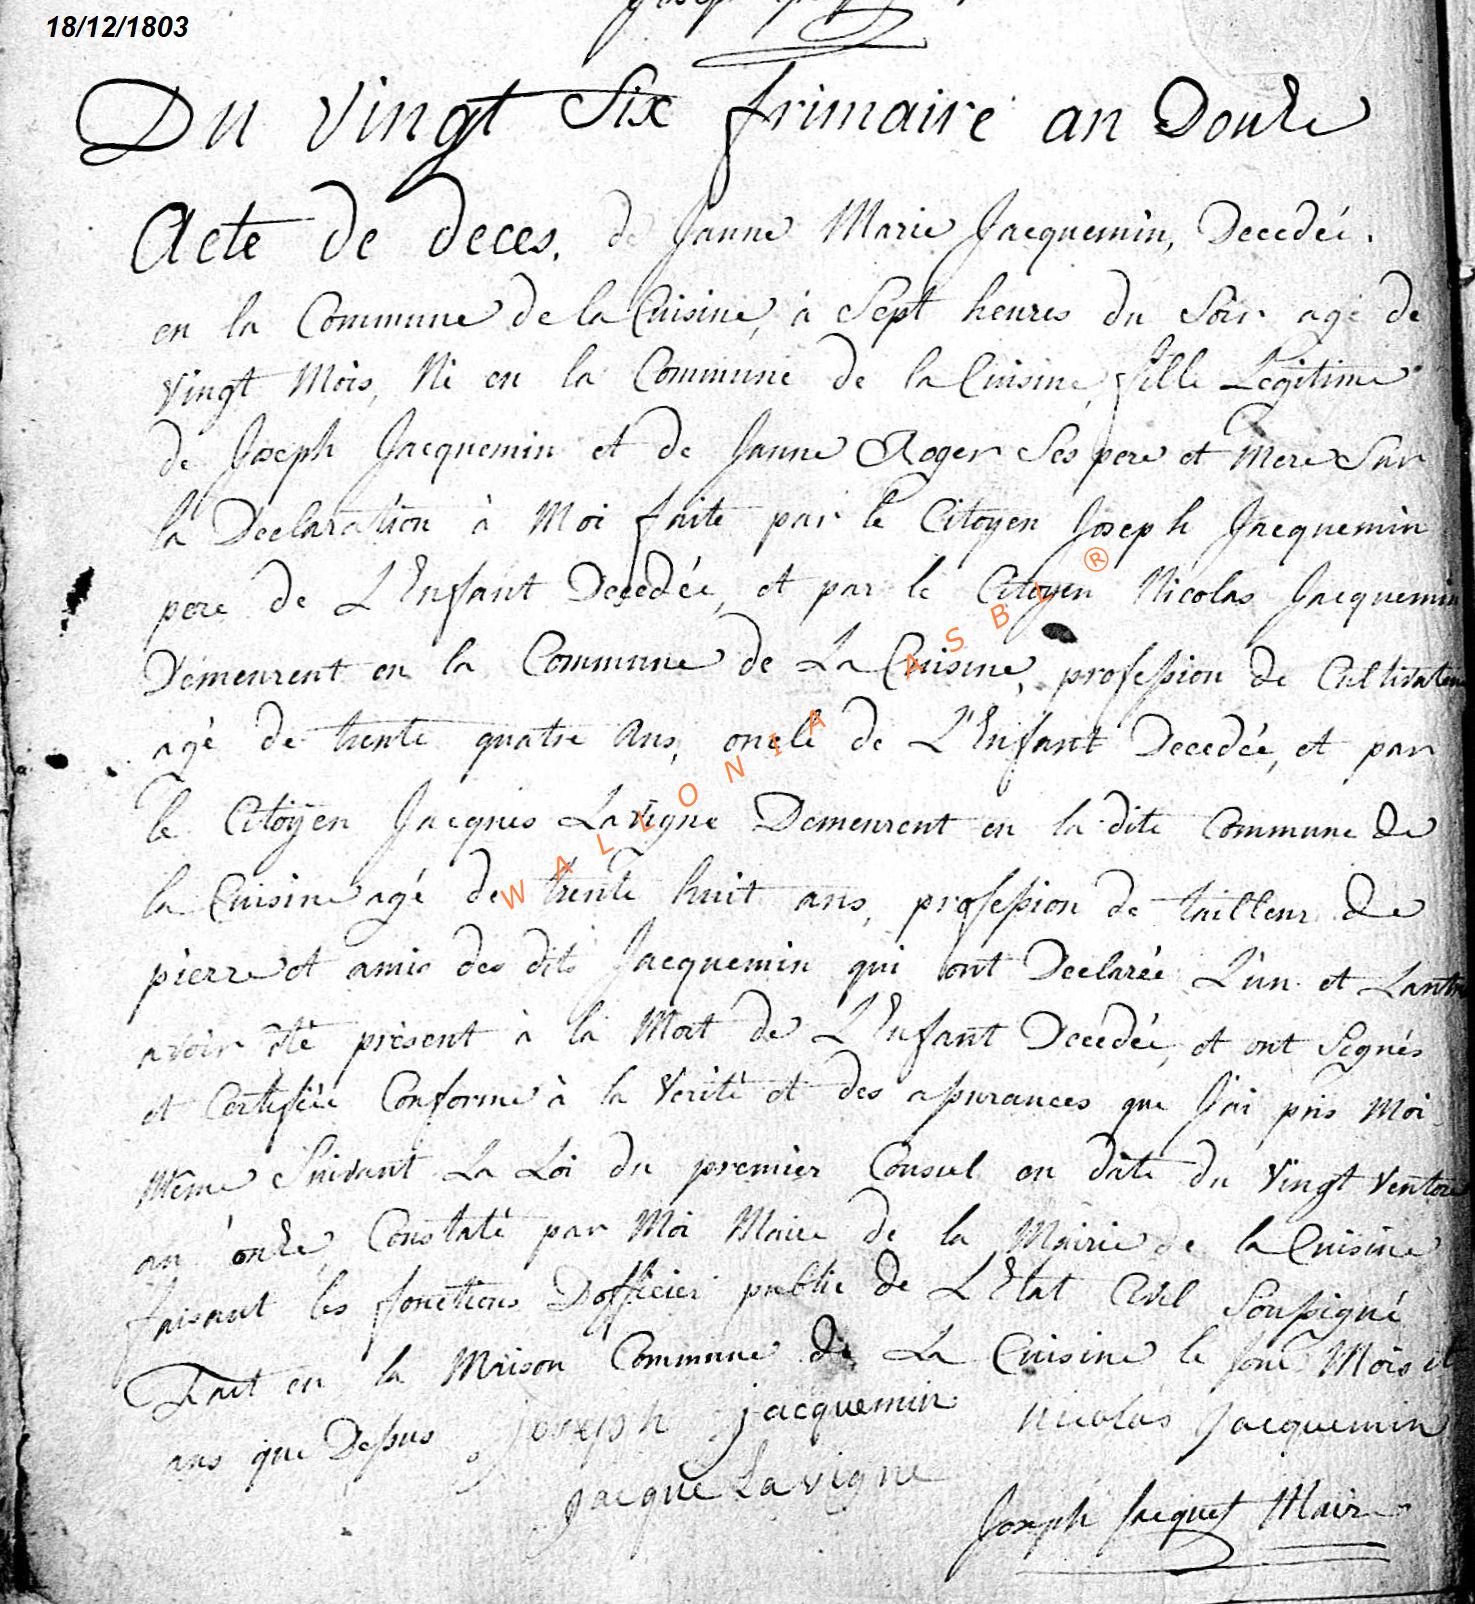 18/12/1803
Joseph
Du vingt Six frimaire an Douze
Acte de deces. de Janne Marie Jacquemin, Decedéé.
en la Commune de la Cuisine, à Sept heures du Soir agé de
vingt Mois, Né en la Commune de la Cuisine, fille Legitime
de Joseph Jacquemin et de Janne Roger Ses pere et Mere Sur
la Declaration à Moi faite par le Citoyen Joseph Jacquemin
pere de L'Enfant Decedée, et par le Citoyen Nicolas Jacquemin
Demeurent en la Commune de La Cuisine, profession de Cultivateur
agé de trente quatre Ans, oncle de L'Enfant Decedée, et par
le Citoÿen Jacques Lavigne Demeurent en la dite Commune de
la Cuisine agé de trente huit ans, profession de tailleur de
pierre et amis des dits Jacquemin qui ont Declarée L'un et Lautre
avoir été présent à la Mort de L'Enfant Decedée, et ont Signés
et Certifiée Conforme à la Verité et des assurances que J'ai pris Moi
Même Suivant La Loi du premier Consul en date du Vingt Ventose
an onze, Constaté par Moi Maire de la Mairie de la Cuisine
faisant les fonctions D'officier public de L'Etat Civil Soussigné
Fait en la Maison Commune de La Cuisine le jour Mois et
ans que Dessus joseph jacquemin nicolas jacquemin
jacque Lavigne
Joseph Jacquet Maire
WALLONIA ASBL ®